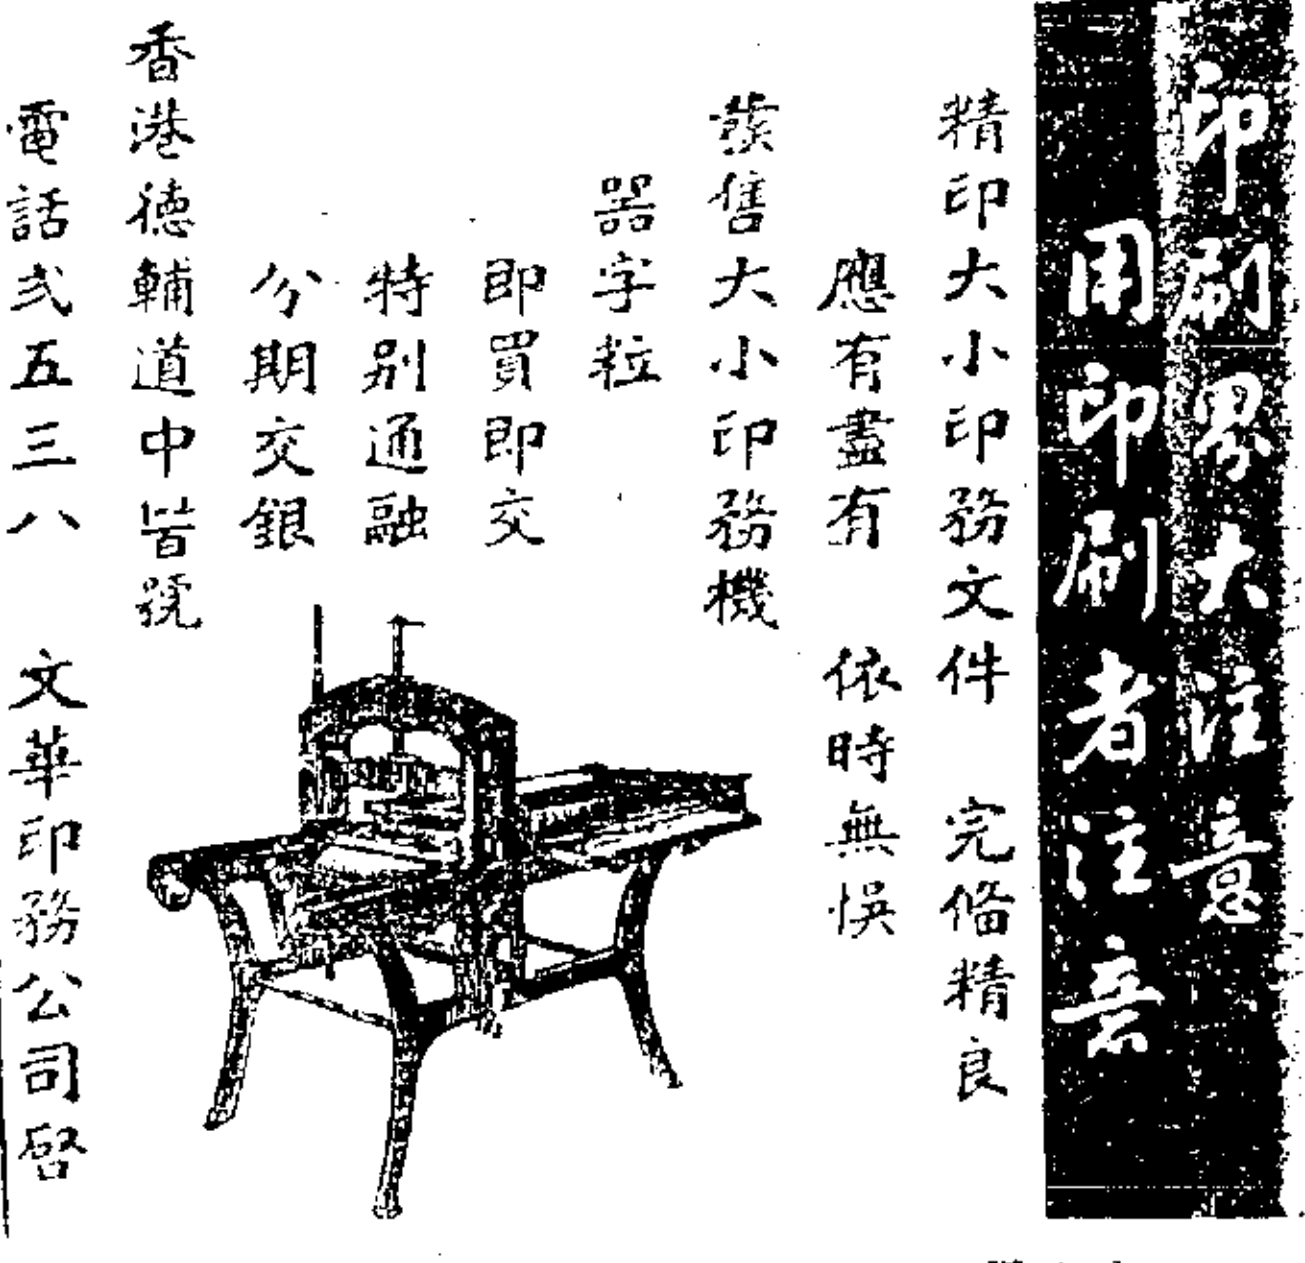 印刷界大注意
用印刷者注意
精印大小印務文件 完俻精良
應有盡有 依時無悞
發售大小印務機
器字粒
即買即交
特别通融
分期交銀
香港德輔道中皆號
電話弍五三八 文華印務公司啓